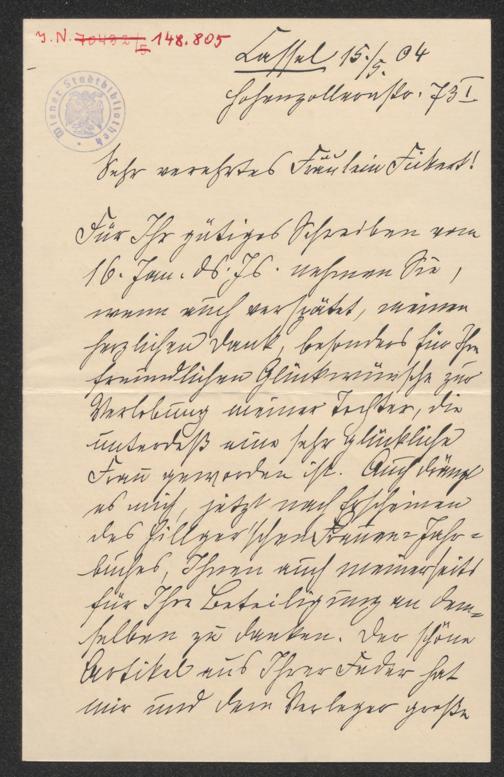 J.N. 70492/5 148.805
Wiener Stadtbibliothek
Cassel 15./5. 04
Hohenzollernstr. 73 I
Sehr verehrtes Fräulein Fickert!
Für Ihr gütiges Schreiben vom
16. Jan. ds. Js. nehmen Sie,
wenn auch verspätet, meinen
herzlichen Dank, besonders für Ihre
freundlichen Glückwünsche zur
Verlobung meiner Tochter, die
unterdeß eine sehr glückliche
Frau geworden ist. Auch drängt
es mich, jetzt nach Erscheinen
des Hillger'schen Frauen-Jahr-
buches, Ihnen auch meinerseits
für Ihre Beteiligung an dem-
selben zu danken. Der schöne
Artikel aus Ihrer Feder hat
mir und dem Verleger große